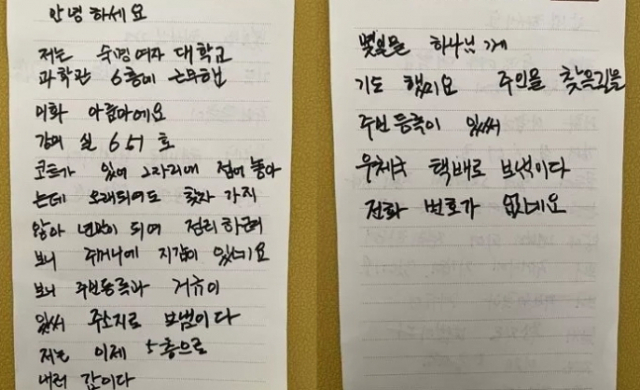 안녕하세요
저는 숙명여자 대학교
과학관 6층에 근무했던
미화 아줌마에요
강의 실 651호
코트가 있어 그자리에 접어 놓아
는데 오래되여도 찾자 가지
않아 년말이 되여 정리 하려
보니 주머니에 지갑이 있네요
보니 주민등록과 거금이
있써 주소지로 보냄이다
저는 이제 5층으로
내려 갑이다
몇일몰 하나님 게
기도 했미요 주인을 찾을길을
주민등록이 있써
우체국 택배로 보냄이다
전화 번호가 없네요